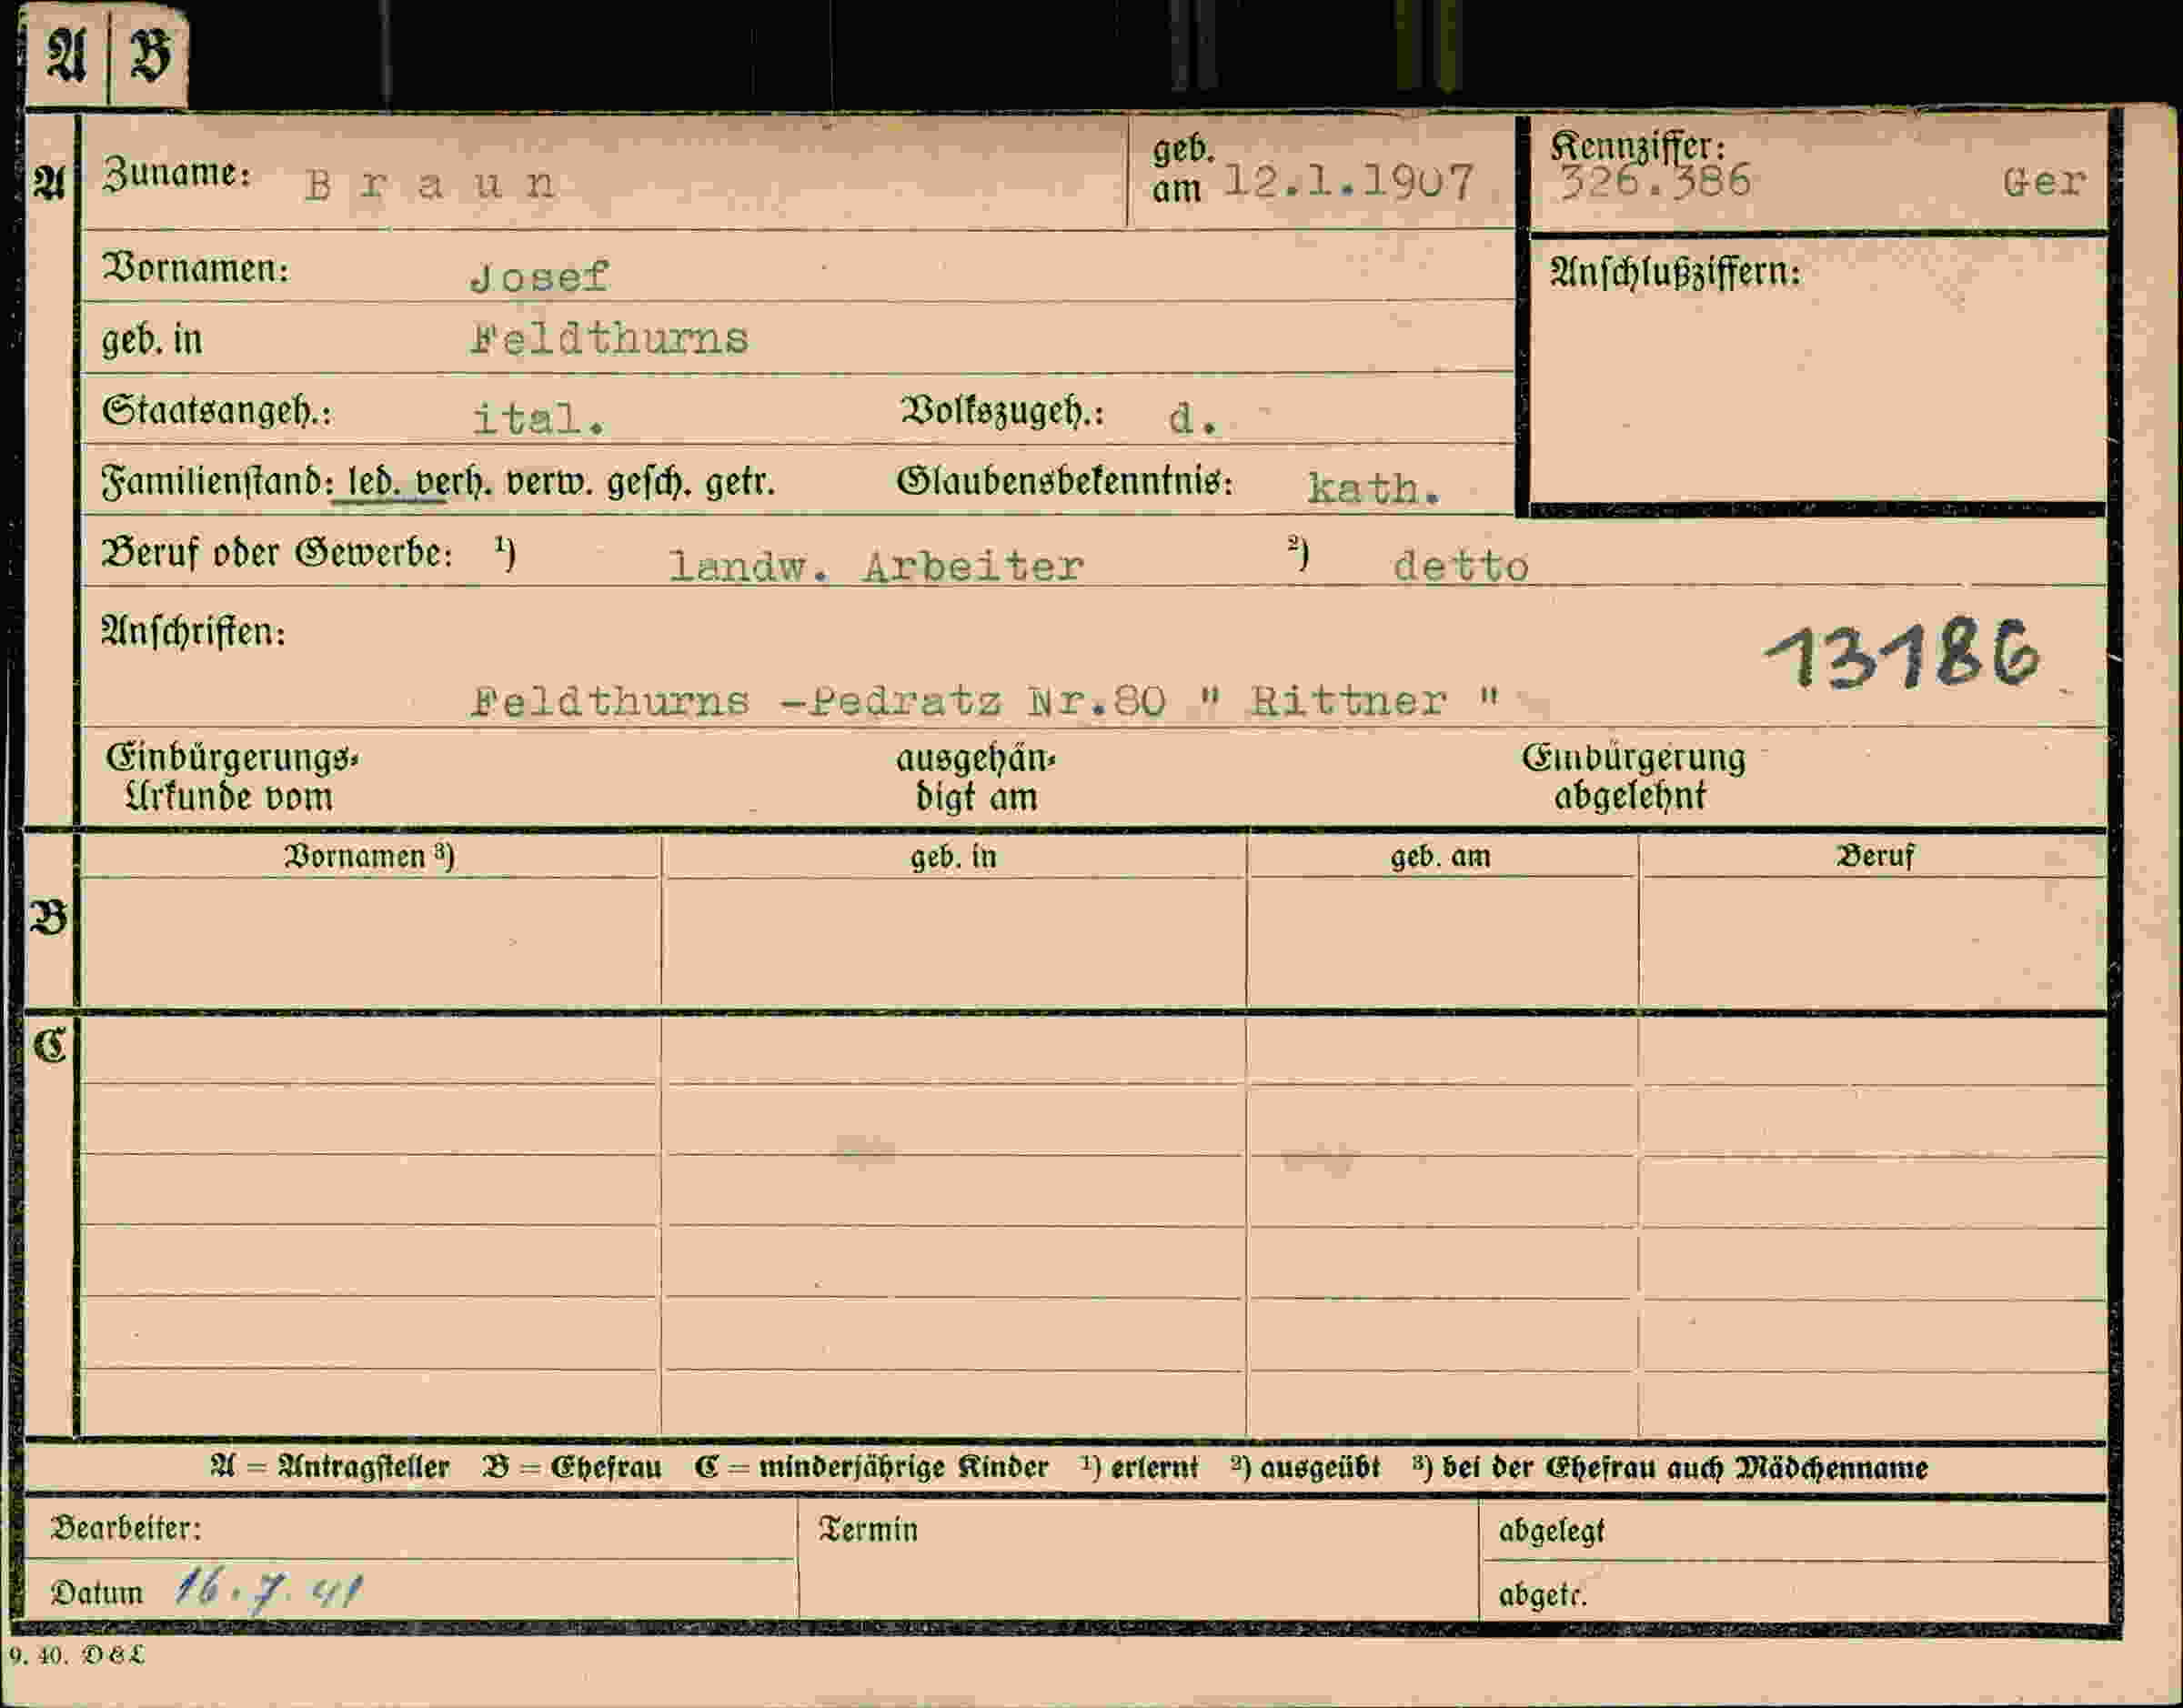 A B
A Zuname: Braun geb. am 12.1.1907 Kennziffer: 326.386 Ger
Vornamen: Josef Anschlußziffern:
geb. in Feldthurns
Staatsangeh.: ital. Volkszugeh.: d.
Familienstand: led. verh. verw. gesch. getr. Glaubensbekenntnis: kath.
Beruf oder Gewerbe: ¹) landw. Arbeiter ²) detto
Anschriften: 13186
Feldthurns -Pedratz Nr.80 " Rittner "
Einbürgerungs- ausgehän- Einbürgerung
Urkunde vom digt am abgelehnt
Vornamen ³) geb. in geb. am Beruf
B
C
A = Antragsteller B = Ehefrau C = minderjährige Kinder ¹) erlernt ²) ausgeübt ³) bei der Ehefrau auch Mädchenname
Bearbeiter: Termin abgelegt
Datum 16.7.41 abgetr.
9. 40.